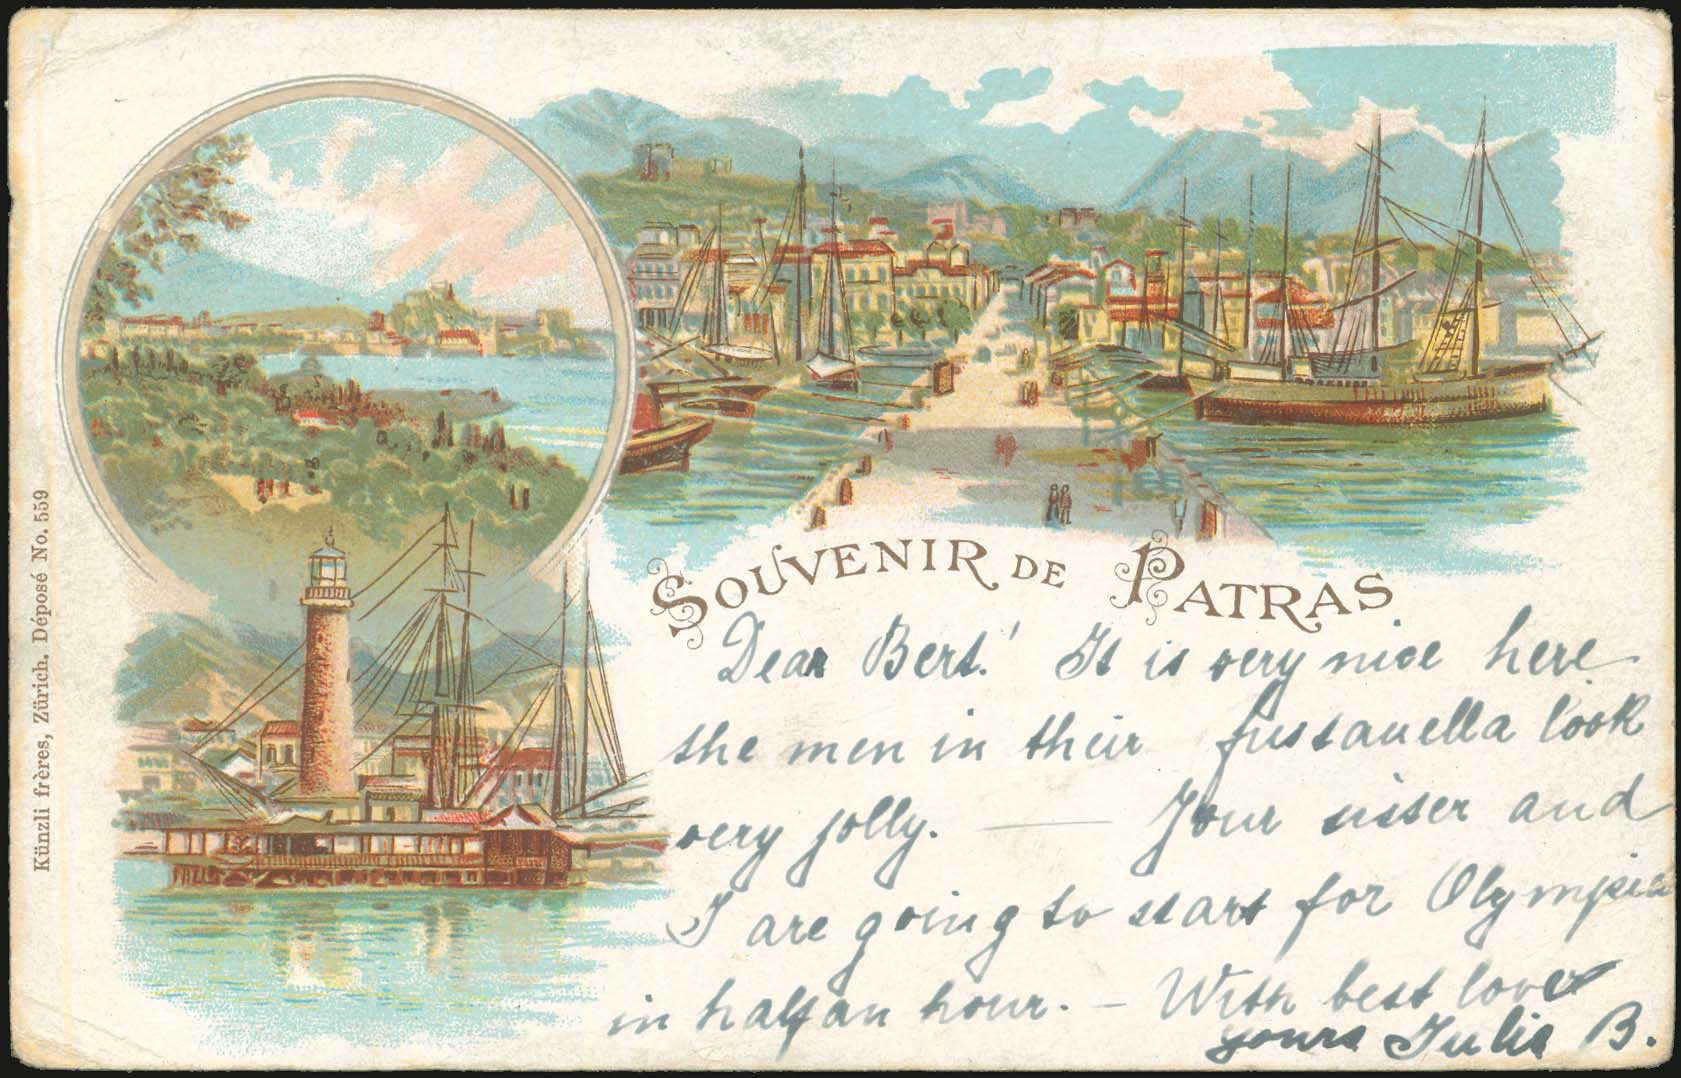 Künzli frères, Zürich. Déposé No. 559
SOUVENIR DE PATRAS
Dear Bert! It is very nice here
the men in their fustanella look
very jolly. — Your sister and
I are going to start for Olympia
in half an hour. – With best love
yours Julia B.